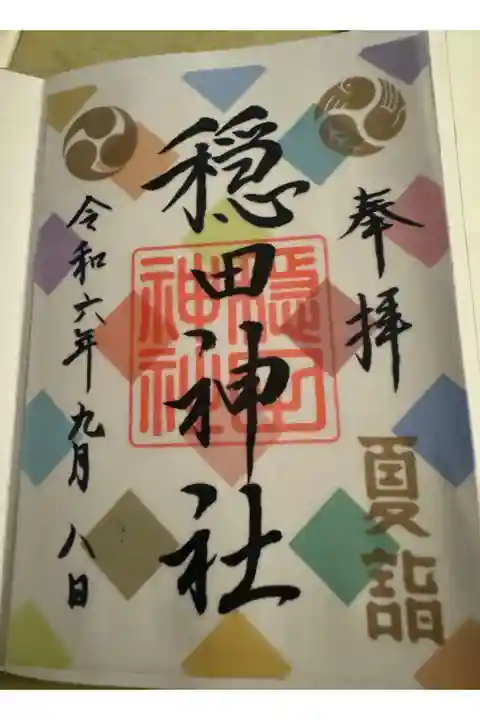 奉拝
夏詣
穏田神社
隠田神社
令和六年九月八日